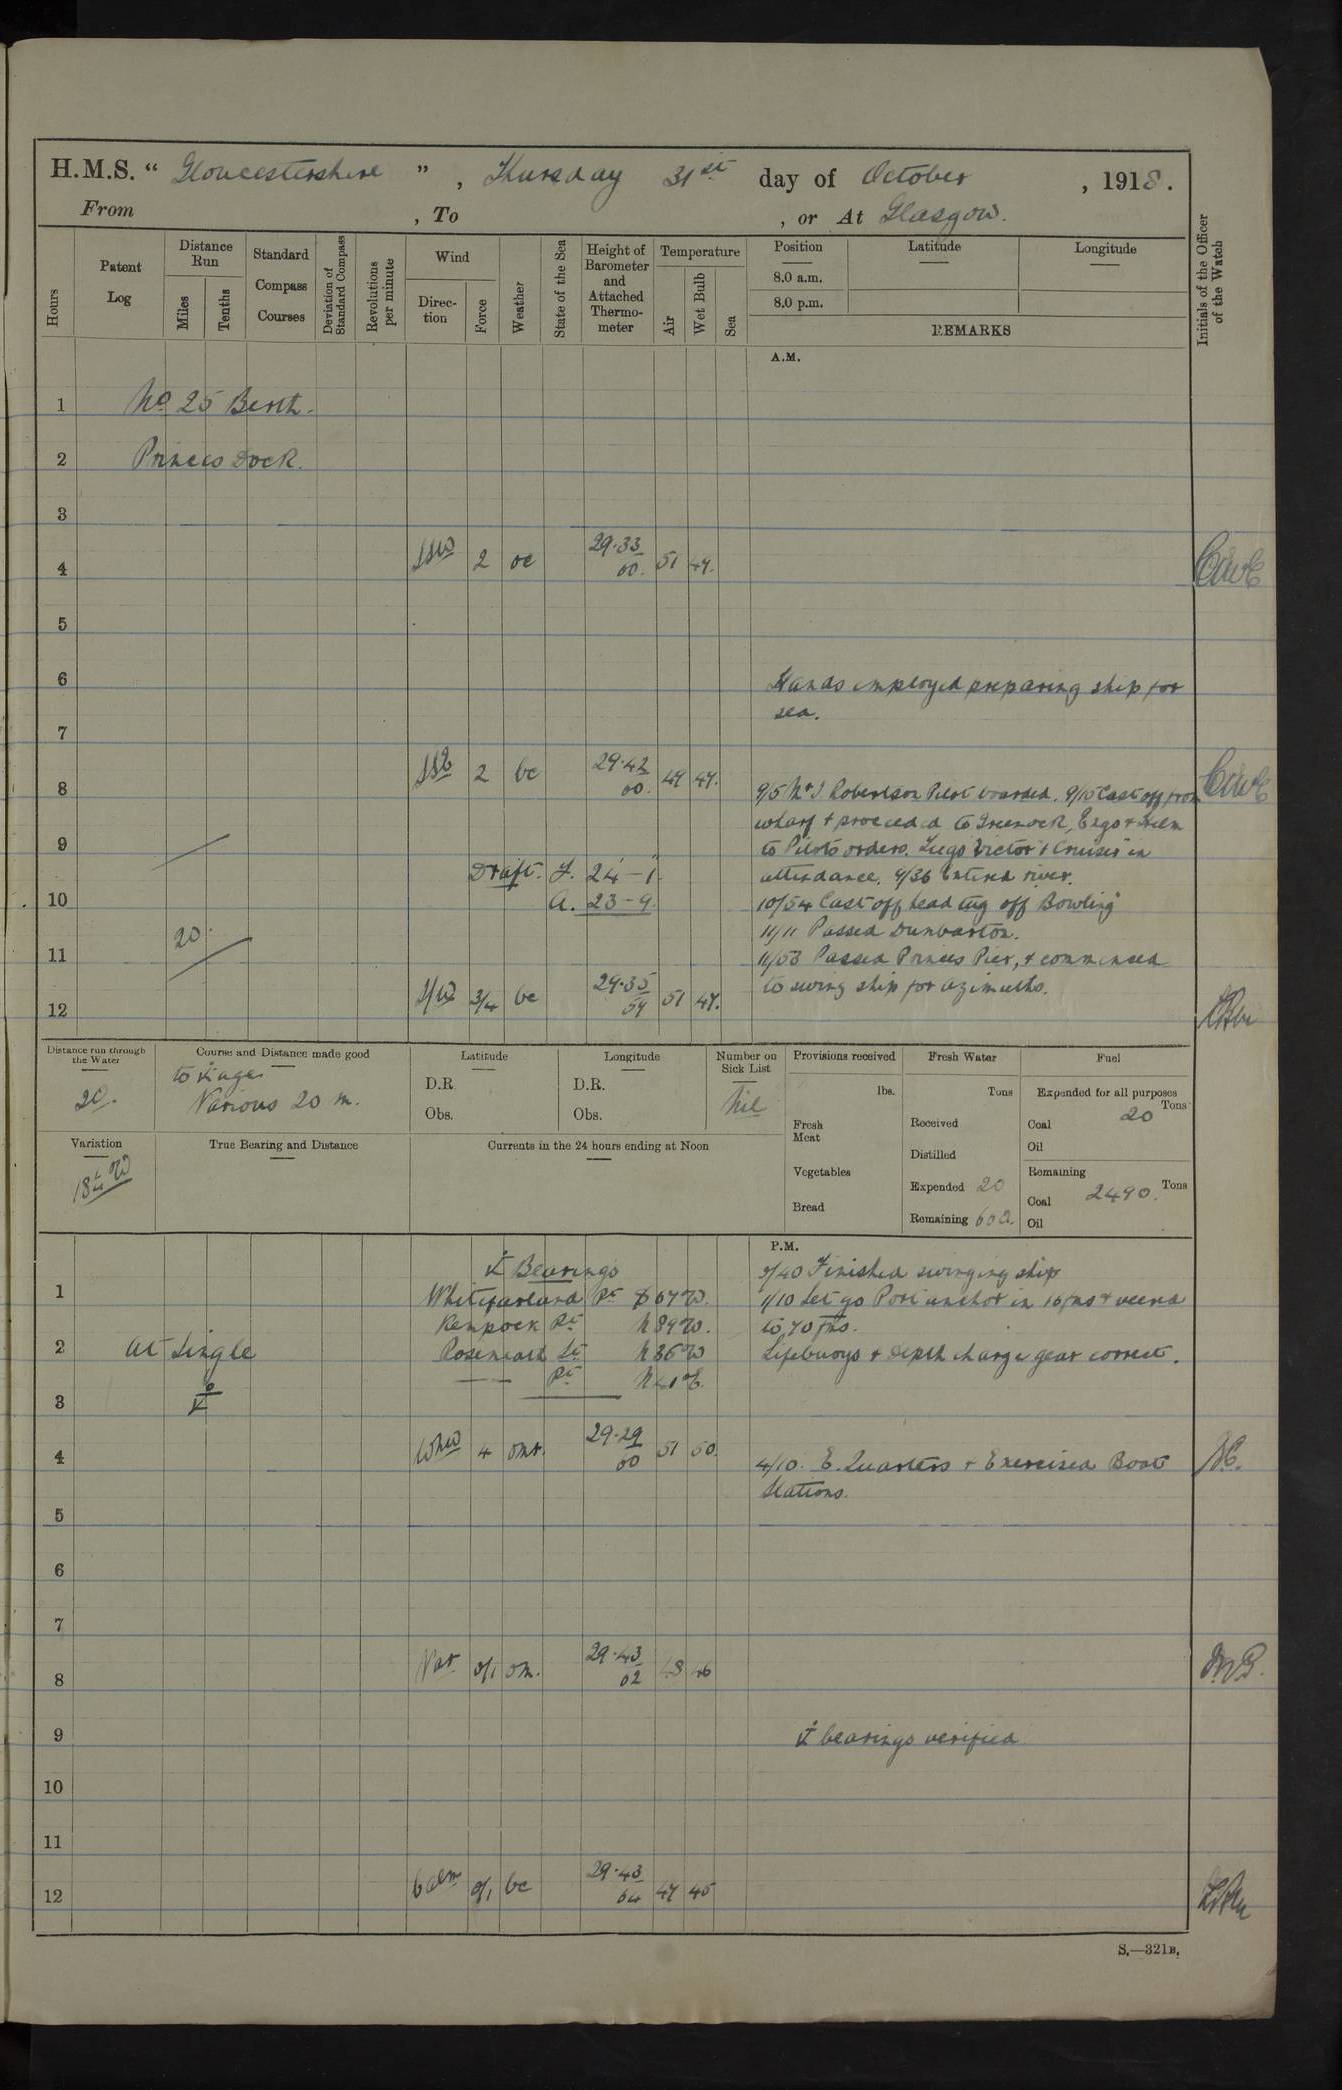 H.M.S. " Gloucestershire ", Thursday 31st day of October, 1918.
From , To , or At Glasgow.
Hours
Patent Log
Distance Run
Miles
Tenths
Standard Compass Courses
Deviation of Standard Compass
Revolutions per minute
Wind
Direction
Force
Weather
State of the Sea
Height of Barometer and Attached Thermometer
Temperature
Air
Wet Bulb
Sea
Position
8.0 a.m.
8.0 p.m.
Latitude
Longitude
REMARKS
Initials of the Officer of the Watch
A.M.
1 No 25 Berth.
2 Princes Dock.
3
4 SSW 2 oc 29.33 51 47.
5
6 Hands employed preparing ship for
sea.
7
8 2 bc 29.42 49 47.
9/5 Mr J Robertson Pilot boarded. 9/10 Cast off from
wharf & proceeded to Greenock, Engs & Helm
9
to Pilots orders. Tugs "Victor" & "Cruiser" in
Draft. F. 24'-1"
attendance. 9/36 Entered river.
10 A. 23-9
10/54 Cast off head tug off "Bowling"
20.
11/11 Passed Dunbarton.
11
11/53 Passed Princes Pier, & commenced
to swing ship for azimuths.
12 3/4 bc 29.35 59 51 47.
Distance run through the Water
20.
Course and Distance made good
Various 20 m.
Latitude
D.R.
Obs.
Longitude
D.R.
Obs.
Number on Sick List
Nil
Provisions received
lbs.
Fresh Meat
Vegetables
Bread
Fresh Water
Tons
Received
Distilled
Expended 20
Remaining
Fuel
Expended for all purposes
Coal 20 Tons
Oil
Remaining
Coal 2490. Tons
Oil
Variation
18¼°W
True Bearing and Distance
Currents in the 24 hours ending at Noon
P.M.
Bearings
0/40 Finished swinging ship
1 Whitefarland Pt S 67 W.
1/10 Let go Port anchor in 16 fms & veered
Kempock Pt N 89 W.
to 70 fms.
2 At Single
Roseneath Lt N 36 W
Lifebuoys & Depth charge gear correct.
Pt N 41 E.
3
4 WNW 4 omr. 29.29 60 51 50.
4/10. E. Quarters & Exercised Boat
Stations.
5
6
7
8 Var 0/1 om. 29.43 62 48 46
9 bearings verified
10
11
12 Calm 0/1 bc 29.43 64 47 45
S.—321B.